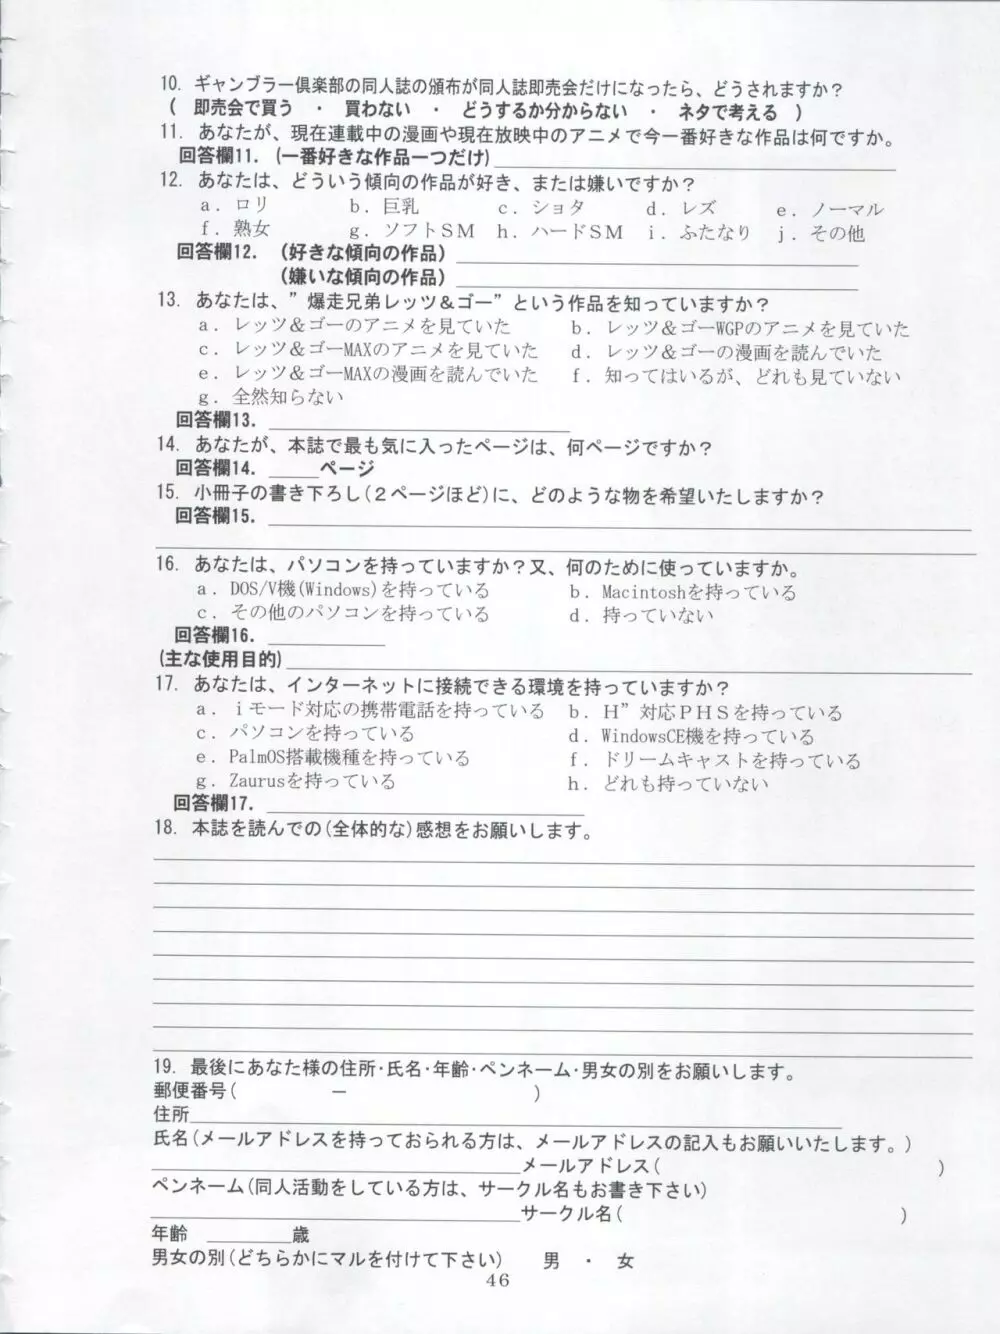 10. ギャンブラー倶楽部の同人誌の頒布が同人誌即売会だけになったら、どうされますか？
( 即売会で買う ・ 買わない ・ どうするか分からない ・ ネタで考える )
11. あなたが、現在連載中の漫画や現在放映中のアニメで今一番好きな作品は何ですか。
回答欄11. (一番好きな作品一つだけ)
12. あなたは、どういう傾向の作品が好き、または嫌いですか？
a. ロリ b. 巨乳 c. ショタ d. レズ e. ノーマル
f. 熟女 g. ソフトＳＭ h. ハードＳＭ i. ふたなり j. その他
回答欄12. (好きな傾向の作品)
(嫌いな傾向の作品)
13. あなたは、”爆走兄弟レッツ＆ゴー”という作品を知っていますか？
a. レッツ＆ゴーのアニメを見ていた b. レッツ＆ゴーWGPのアニメを見ていた
c. レッツ＆ゴーMAXのアニメを見ていた d. レッツ＆ゴーの漫画を読んでいた
e. レッツ＆ゴーMAXの漫画を読んでいた f. 知ってはいるが、どれも見ていない
g. 全然知らない
回答欄13.
14. あなたが、本誌で最も気に入ったページは、何ページですか？
回答欄14. ページ
15. 小冊子の書き下ろし(２ページほど)に、どのような物を希望いたしますか？
回答欄15.
16. あなたは、パソコンを持っていますか？又、何のために使っていますか。
a. DOS/V機(Windows)を持っている b. Macintoshを持っている
c. その他のパソコンを持っている d. 持っていない
回答欄16.
(主な使用目的)
17. あなたは、インターネットに接続できる環境を持っていますか？
a. ｉモード対応の携帯電話を持っている b. Ｈ”対応ＰＨＳを持っている
c. パソコンを持っている d. WindowsCE機を持っている
e. PalmOS搭載機種を持っている f. ドリームキャストを持っている
g. Zaurusを持っている h. どれも持っていない
回答欄17.
18. 本誌を読んでの(全体的な)感想をお願いします。
19. 最後にあなた様の住所･氏名･年齢･ペンネーム･男女の別をお願いします。
郵便番号( － )
住所
氏名(メールアドレスを持っておられる方は、メールアドレスの記入もお願いいたします。)
メールアドレス( )
ペンネーム(同人活動をしている方は、サークル名もお書き下さい)
サークル名( )
年齢 歳
男女の別(どちらかにマルを付けて下さい) 男 ・ 女
46